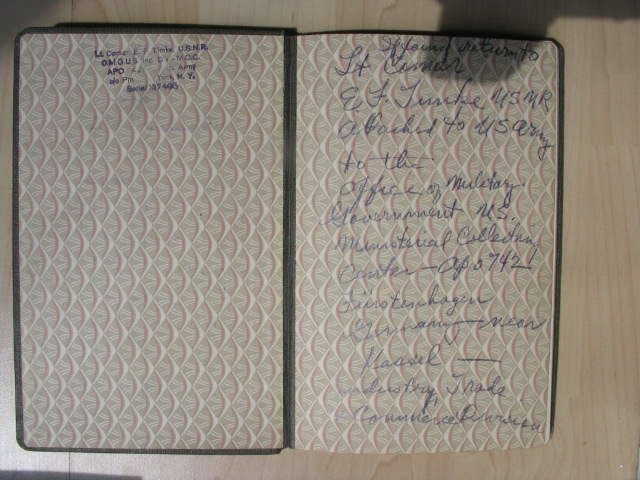 Lt. Comdr. E. F. Timke, U.S.N.R.
O.M.G.U.S. Div - M.C.C.
APO Army
c/o P York, N. Y.
Serial
If found return to
Lt Comdr
E. F. Timke USNR
attached to US Army
to the
Office of Military
Government U.S.
Ministerial Collecting
Center - Apo 742
Fürstenhagen
Germany - near
Kassel —
industry, Trade
Commerce Division